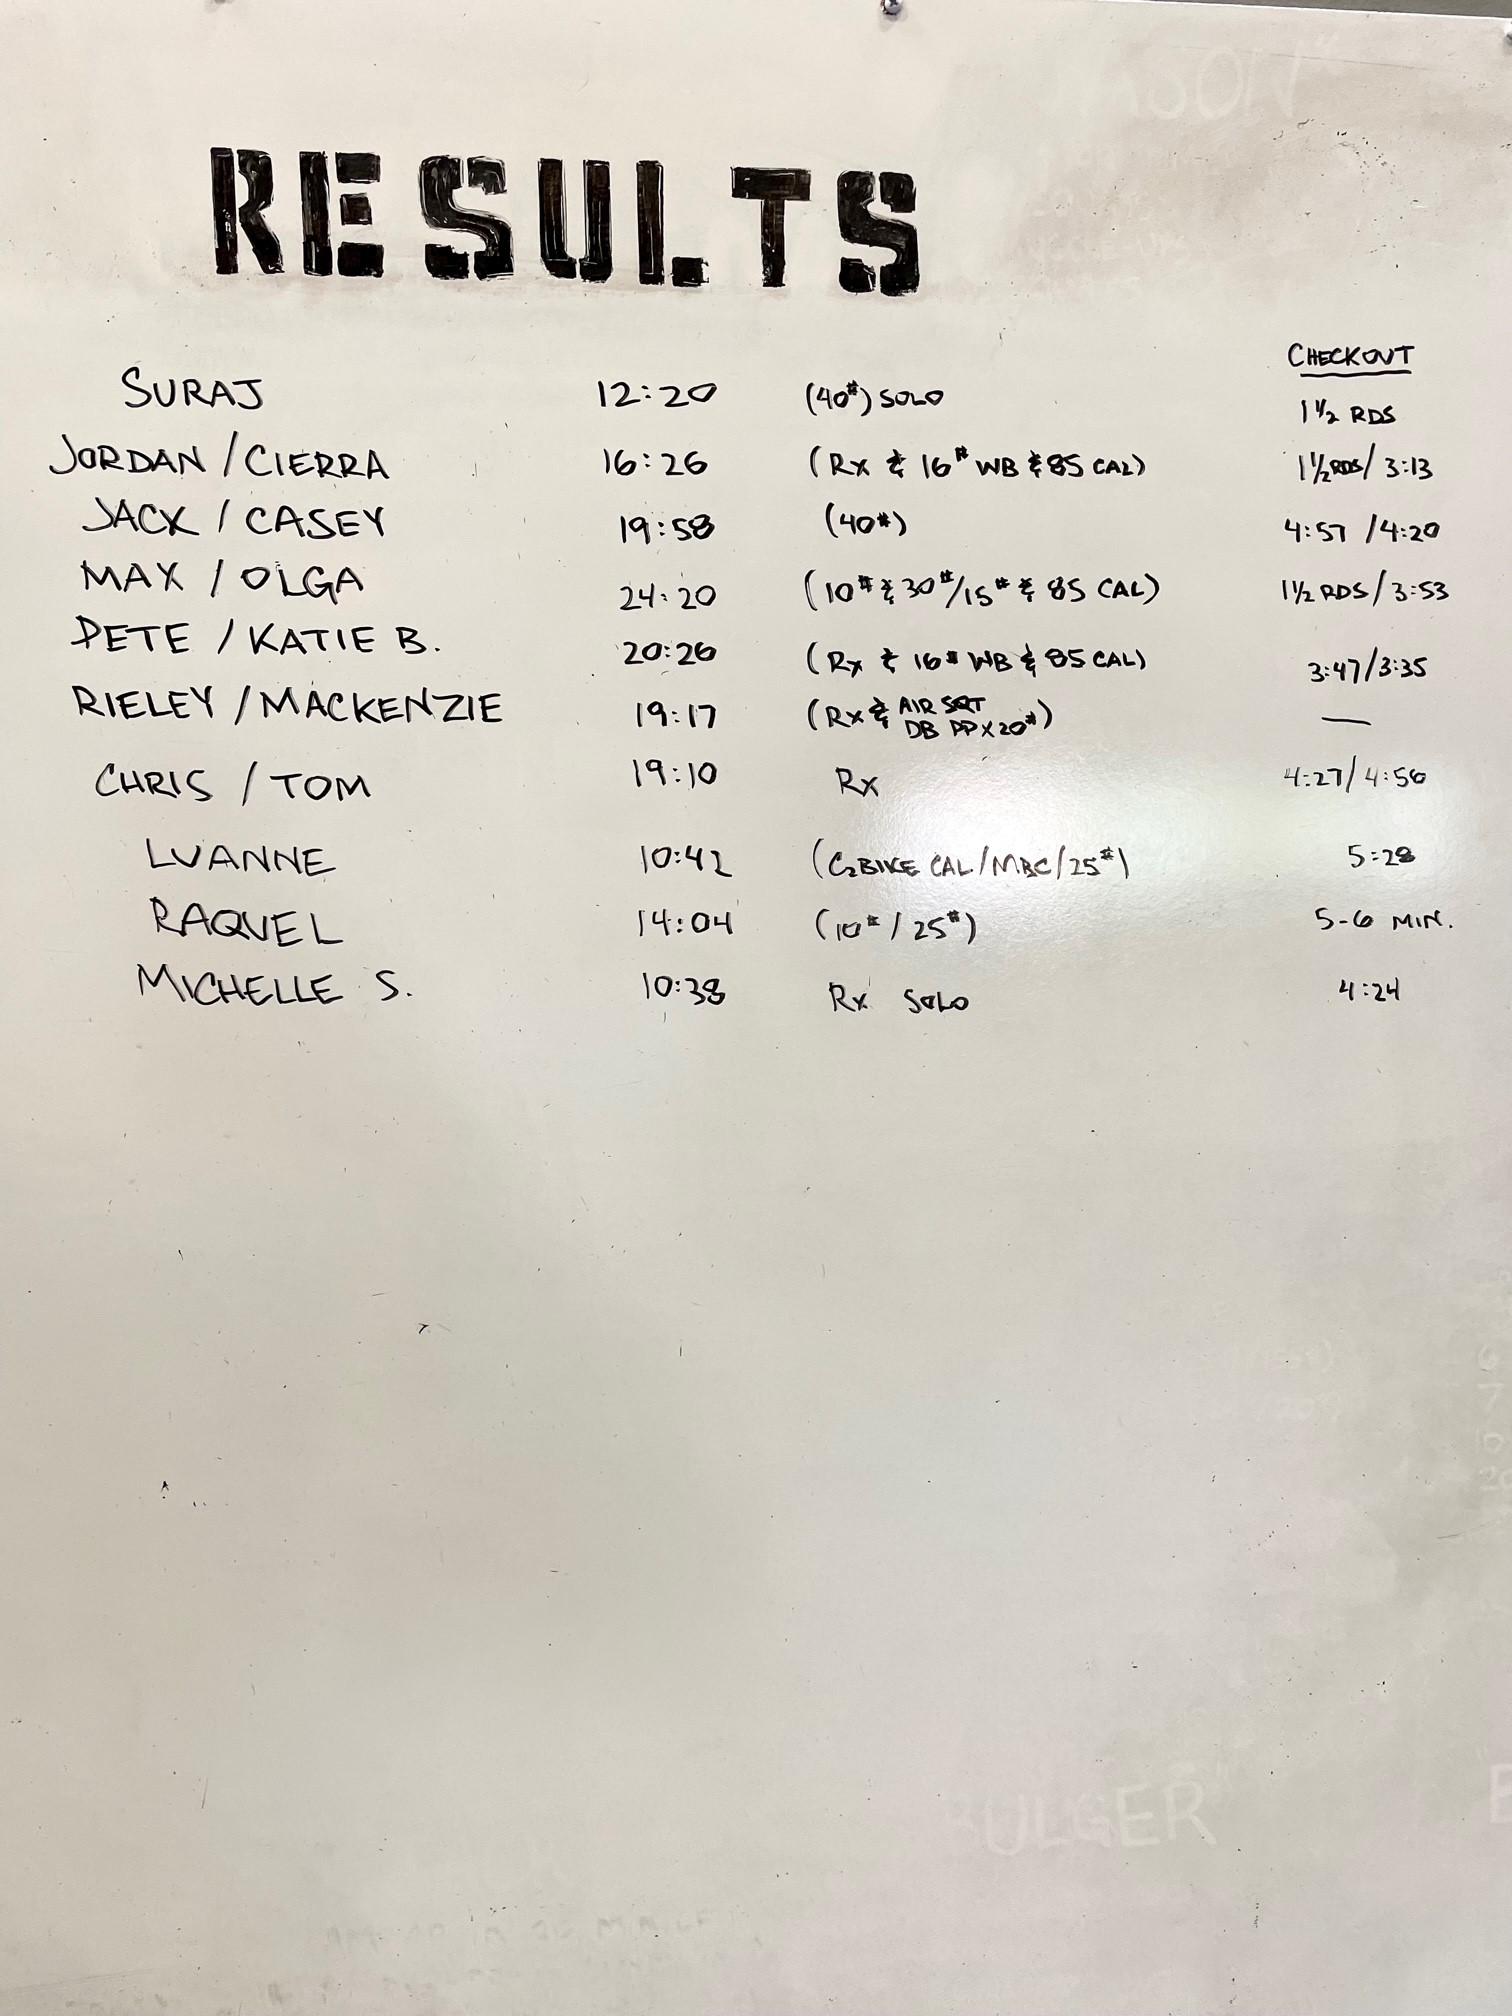 RESULTS
CHECKOUT
SURAJ 12:20 (40#) SOLO 1 1/2 RDS
JORDAN / CIERRA 16:26 (Rx & 16# WB & 85 CAL) 1 1/2 RDS / 3:13
JACK / CASEY 19:58 (40#) 4:57 / 4:20
MAX / OLGA 24:20 (10# & 30#/15# & 85 CAL) 1 1/2 RDS / 3:53
PETE / KATIE B. 20:26 (Rx & 16# WB & 85 CAL) 3:47/3:35
RIELEY / MACKENZIE 19:17 (Rx & AIR SQT DB PP x 20#) —
CHRIS / TOM 19:10 Rx 4:27/4:56
LUANNE 10:42 (C2BIKE CAL/MBC/25#) 5:28
RAQUEL 14:04 (10# / 25#) 5-6 MIN.
MICHELLE S. 10:38 Rx SOLO 4:24
BULGER"